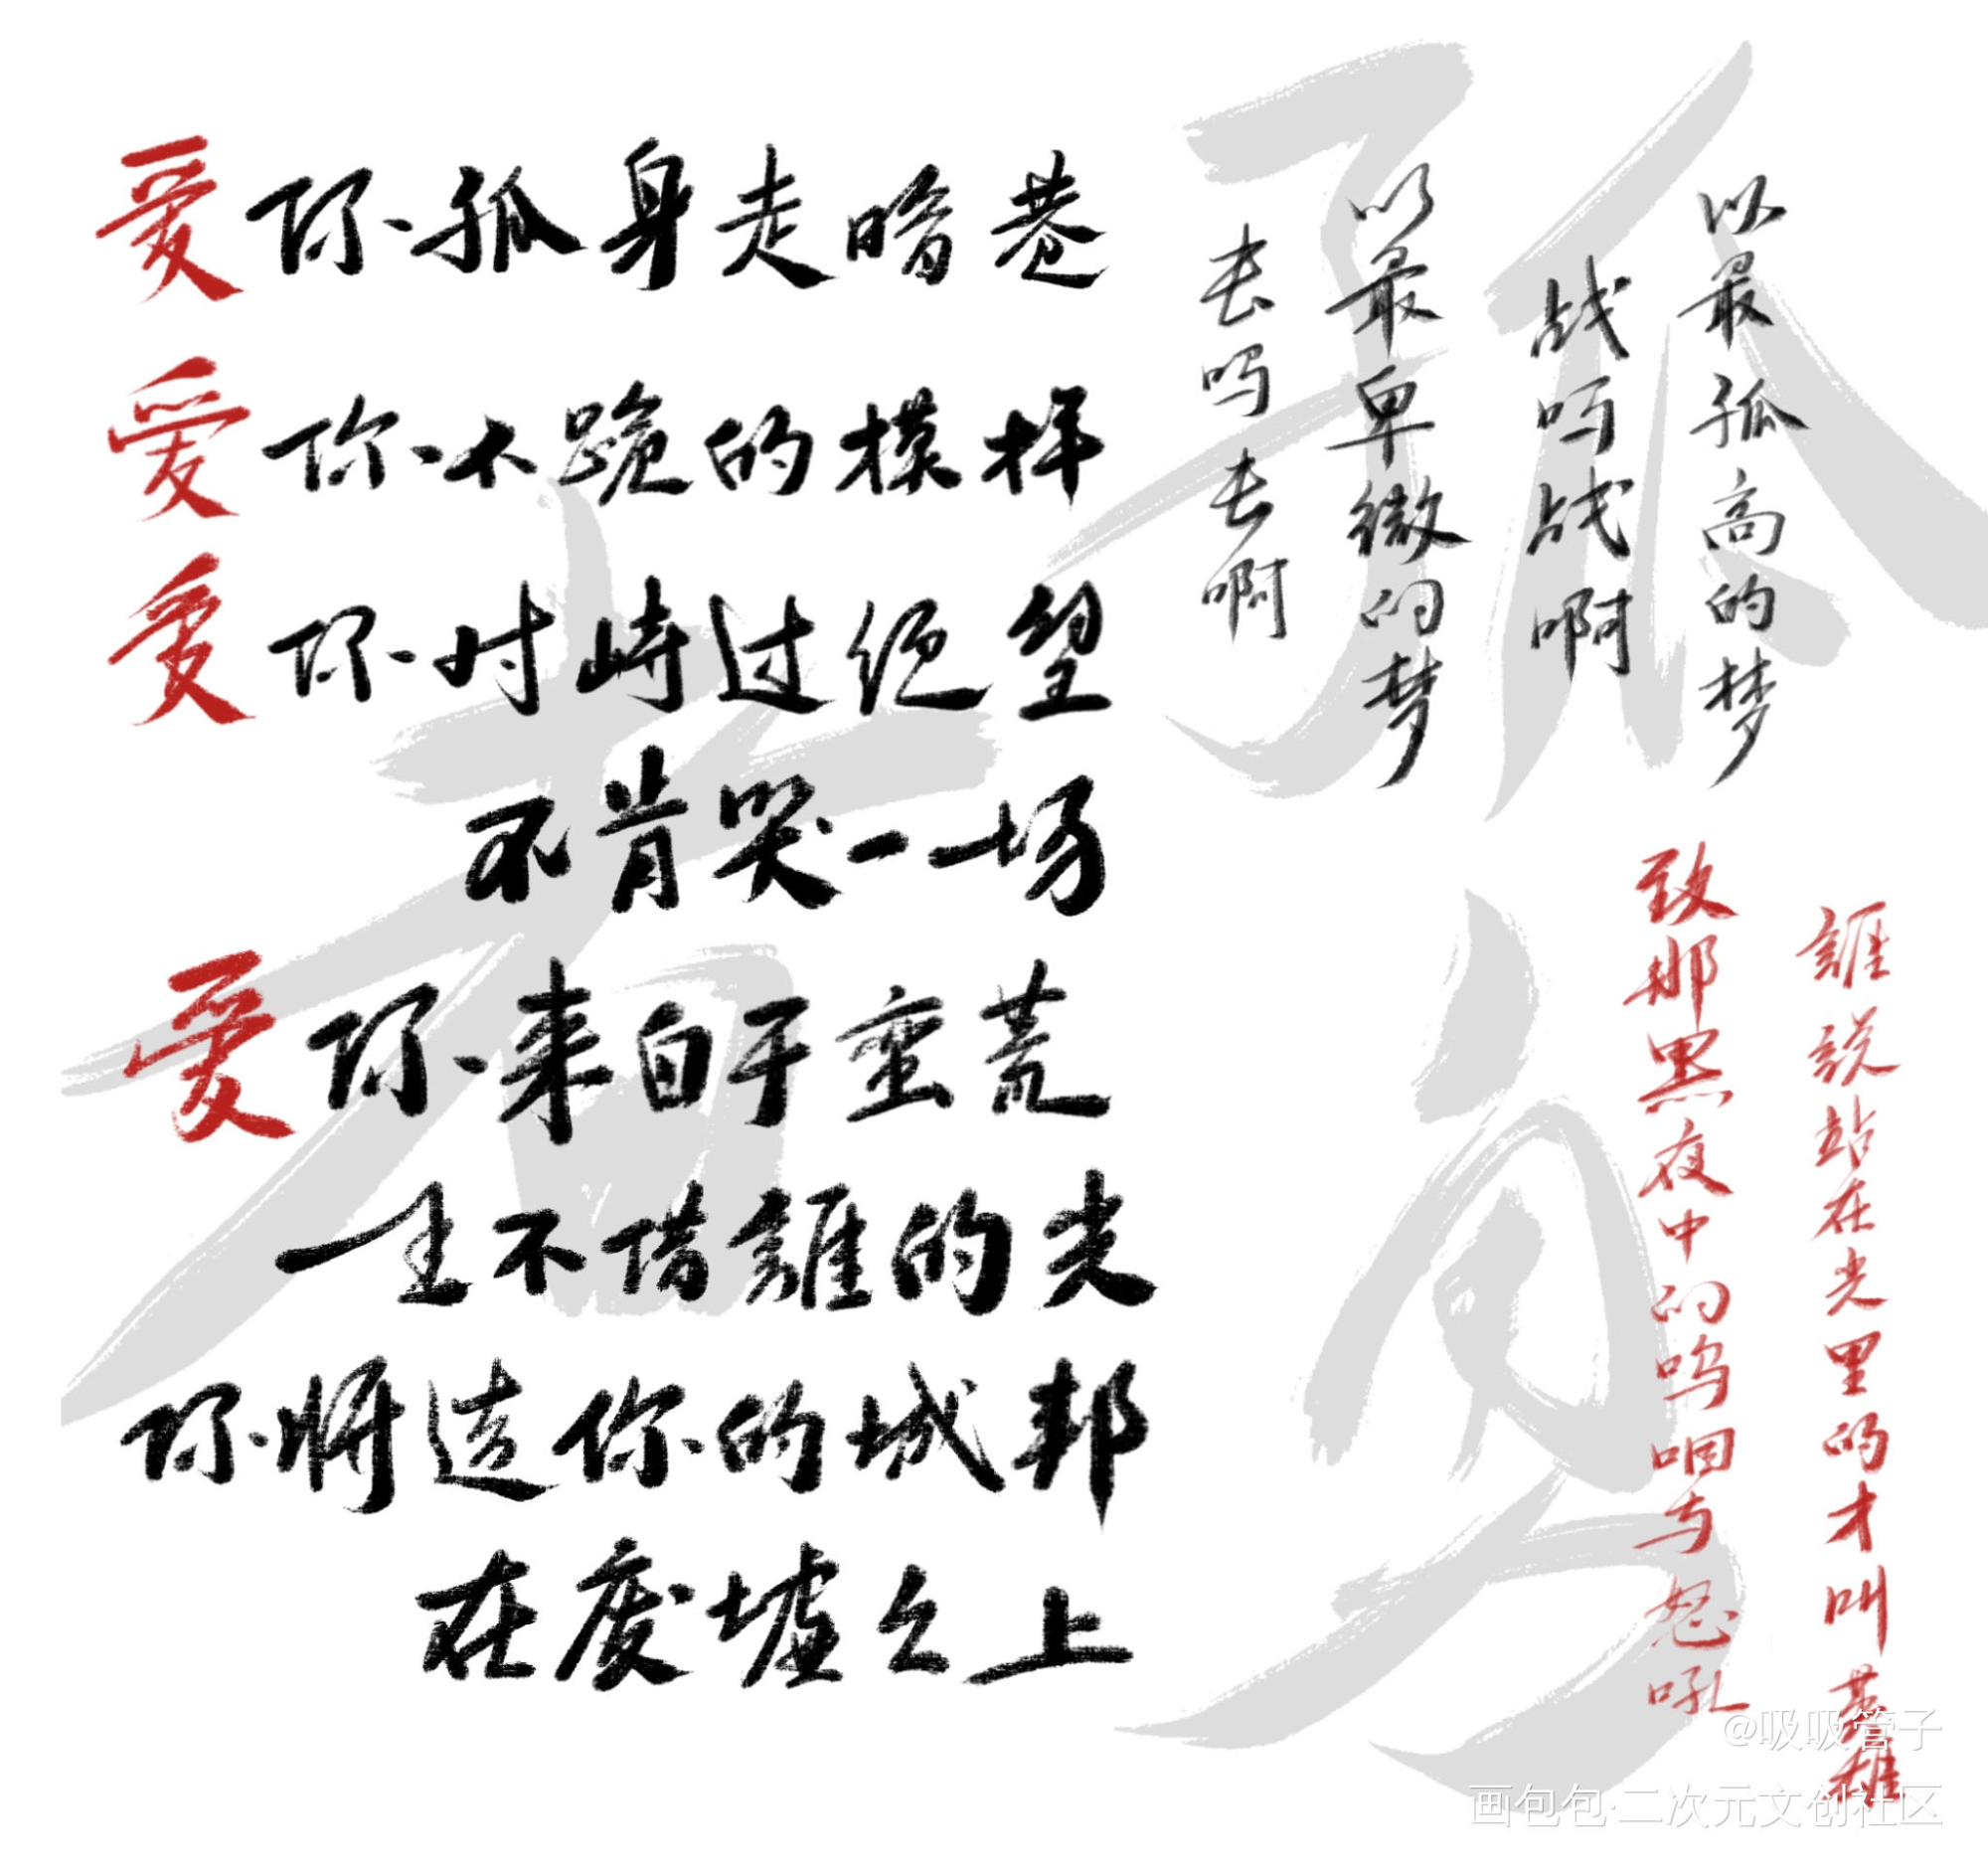 爱你孤身走暗巷
爱你不跪的模样
爱你对峙过绝望
不肯哭一场
爱你来自于蛮荒
一生不借誰的光
你将造你的城邦
在废墟之上
去吗去啊
以最卑微的梦
战吗战啊
以最孤高的梦
致那黑夜中的呜咽与怒吼
誰説站在光里的才叫英雄
孤勇者
@吸吸管子
画包包·二次元文创社区